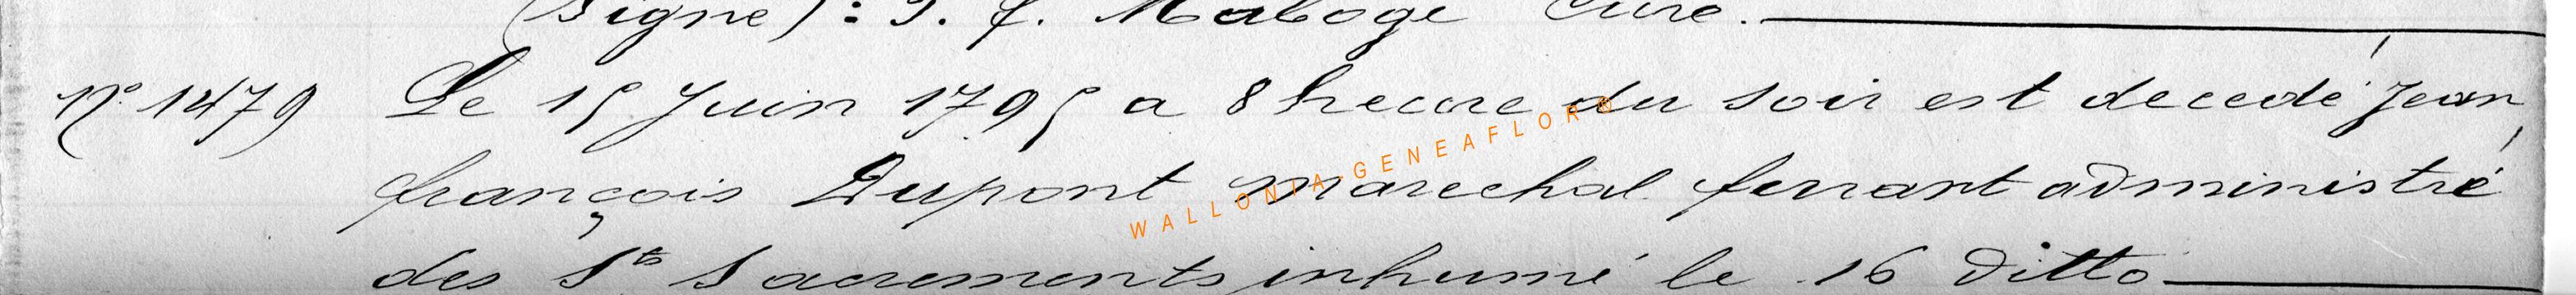 (Signé) : J. f. Maboge Curé.
N° 1479 Le 15 Juin 1795 a 8 heure du soir est decedé Jean
françois Dupont marechal ferrant administré
des Sts Sacrements inhumé le 16 ditto
WALLONIA-GENEAFLOR®